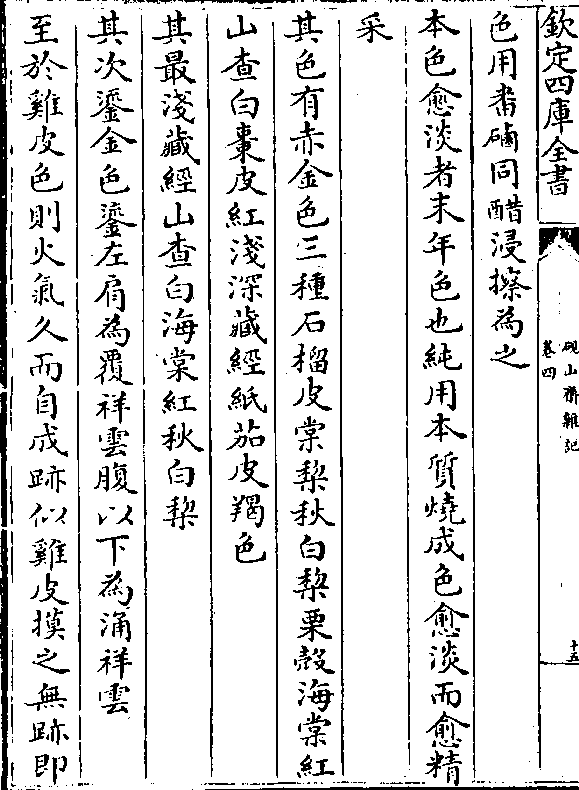 欽定四庫全書
硯山齋雜記
卷四
十五
色用番硇同醋浸擦為之
本色愈淡者末年色也純用本質燒成色愈淡而愈精
采
其色有赤金色三種石榴皮棠梨秋白梨栗殼海棠紅
山查白棗皮紅淺深藏經紙茄皮羯色
其最淺藏經山查白海棠紅秋白梨
其次鎏金色鎏左肩為覆祥雲腹以下為涌祥雲
至於雞皮色則火氣久而自成跡似雞皮摸之無跡即